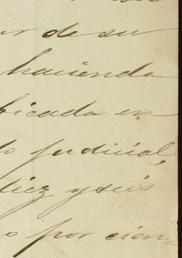 de su
hacienda
bicada en
o judicial,
diez y seis
o por cien-